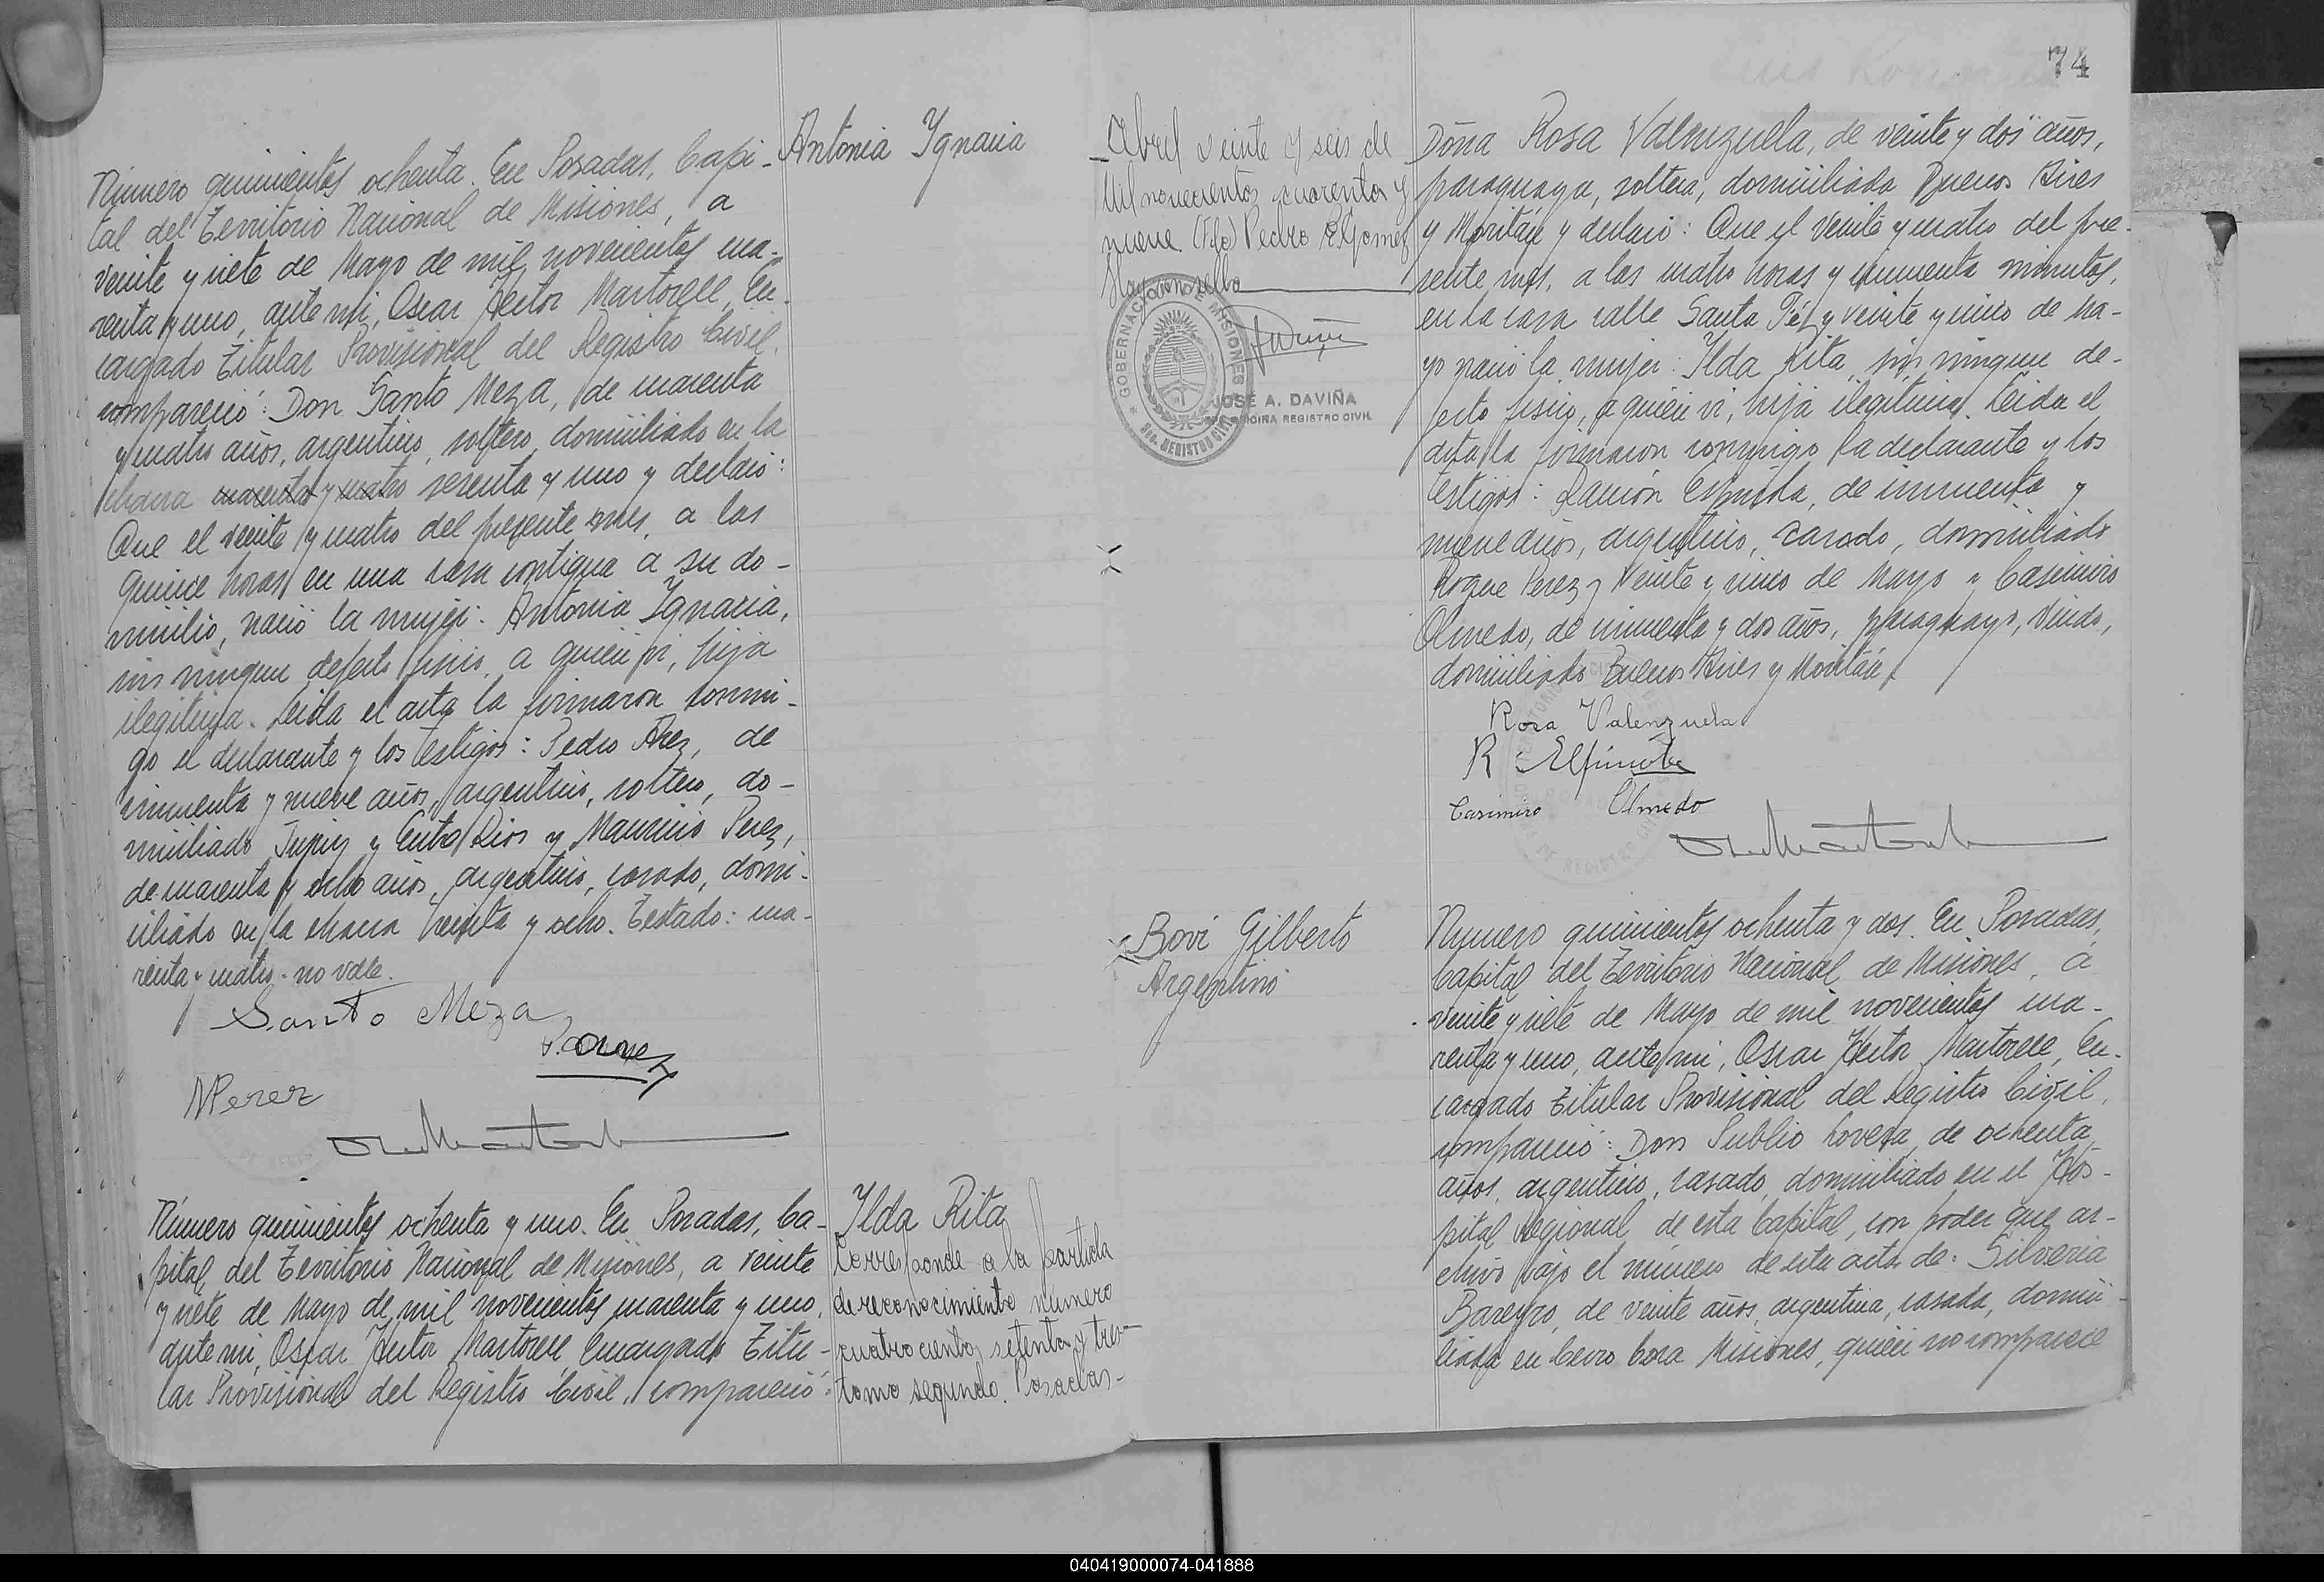 Número quinientos ochenta. En Posadas, Capi-
tal del Territorio Nacional de Misiones, a
veinte y siete de Mayo de mil novecientos cua-
renta y uno, ante mi, Oscar Hector Martorell, En-
cargado Titular Provisional del Registro Civil,
compareció: Don Santo Meza, de cuarenta
y cuatro años, argentino, soltero, domiciliado en la
chacra cuarenta y cuatro sesenta y uno y declaró:
Que el veinte y cuatro del presente mes, a las
quince horas en una casa contigua a su do-
micilio, nació la mujer: Antonia Ygnacia,
sin ningun defecto fisico, a quien vi, hija
ilegitima. Leida el acta la firmaron conmi-
go el declarante y los testigos: Pedro , de
cincuenta y nueve años, argentino, soltero, do-
miciliado Jujuy y Entre Rios y Mauricio Perez,
de cuarenta y ocho años, argentino, casado, domi-
ciliado en la chacra treinta y ocho. Testado: cua-
renta y cuatro - no vale.
Santo Meza
MPerez
Antonia Ygnacia
Número quinientos ochenta y uno. En Posadas, Ca-
pital del Territorio Nacional de Misiones, a veinte
y siete de Mayo de mil novecientos cuarenta y uno,
ante mi, Oscar Hector Martorell Encargado Titu-
lar Provisional del Registro Civil, compareció:
Ylda Rita
Corresponde a la partida
de reconocimiento número
cuatrocientos setenta y tres
tomo segundo. Posadas-
74
Abril veinte y seis de
mil novecientos cuarenta y
nueve (Fdo) Pedro R. Gomez
Hay un sello
GOBERNACION DE MISIONES
REGISTRO CIVIL
JOSÉ A. DAVIÑA
OFICINA REGISTRO CIVIL
Doña Rosa Valenzuela, de veinte y dos años,
paraguaya, soltera, domiciliada Buenos Aires
y Moritán y declaró: Que el veinte y cuatro del pre-
sente mes, a las cuatro horas y cincuenta minutos,
en la casa calle Santa Fé y veinte y cinco de Ma-
yo nació la mujer: Ylda Rita, sin ningun de-
fecto fisico, a quien vi, hija ilegitima. Leida el
acta la firmaron conmigo la declarante y los
testigos: Ramón Espinola, de cincuenta y
nueve años, argentino, casado, domiciliado
Roque Perez y Veinte y cinco de Mayo y Casimiro
Olmedo, de cincuenta y dos años, paraguayo, viudo,
domiciliado Buenos Aires y Moritán
Rosa Valenzuela
R Espinola
Casimiro Olmedo
Bovi Gilberto
Argentino
Número quinientos ochenta y dos. En Posadas,
Capital del Territorio Nacional de Misiones, a
veinte y siete de Mayo de mil novecientos cua-
renta y uno, ante mi, Oscar Hector Martorell, En-
cargado Titular Provisional del Registro Civil,
compareció: Don Publio Lovera, de ochenta
años, argentino, casado, domiciliado en el Hos-
pital Regional de esta Capital, con poder que ar-
chivo bajo el número de esta acta de: Silveria
Bareyro, de veinte años, argentina, casada, domici-
liada en Cerro Cora Misiones, quien no comparece
040419000074-041888